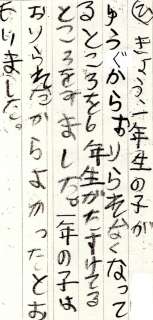 ひ きょう、一年生の子が
ゆうぐからおりられなくなって
るところを6年生がたすけてる
ところをみました。一年の子は
おりられたからよかったとお
もいました。